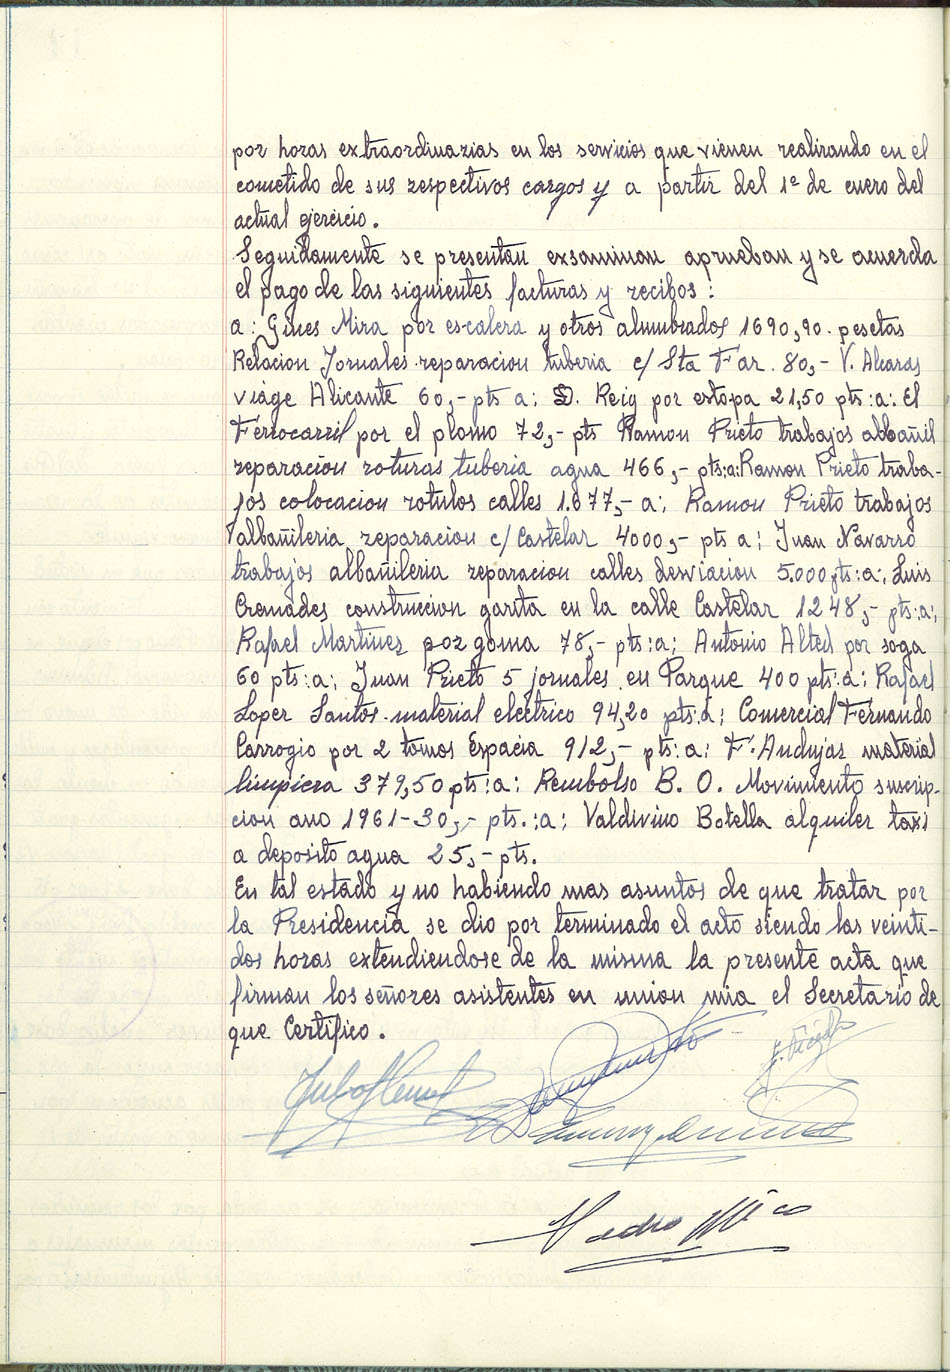 por horas extraordinarias en los servicios que vienen realizando en el
cometido de sus respectivos cargos y a partir del 1º de enero del
actual ejercicio.
Seguidamente se presentan exsaminan aprueban y se acuerda
el pago de las siguientes facturas y recibos:
a: Gines Mira por escalera y otros alumbrados 1690,90. pesetas
Relacion Jornales reparacion tuberia c/ Sta Far. 80,- V. Alcaras
viage Alicante 60,- pts a: D. Reig por estopa 21,50 pts:a: El
Ferrocarril por el plomo 72,- pts Ramon Prieto trabajos albañil
reparacion roturas tuberia agua 466,- pts:a: Ramon Prieto traba-
jos colocacion rotulos calles 1.677,- a: Ramon Prieto trabajos
albañileria reparacion c/ Castelar 4000,- pts a: Juan Navarro
trabajos albañileria reparacion calles desviacion 5.000 pts:a: Luis
Cremades construccion garita en la calle Castelar 1248,- pts:a:
Rafael Martinez por goma 78,- pts:a: Antonio Alted por soga
60 pts:a: Juan Prieto 5 jornales en Parque 400 pts:a: Rafael
Loper Santos material electrico 94,20 pts:a: Comercial Fernando
Carrogio por 2 tomos Espacia 912,- pts:a: F. Andujar material
limpiera 379,50 pts:a: Rembolso B. O. Movimiento suscrip-
cion ano 1961-30,- pts.:a: Valdivino Botella alquiler taxi
a deposito agua 25,- pts.
En tal estado y no habiendo mas asuntos de que tratar por
la Presidencia se dio por terminado el acto siendo las veinti-
dos horas extendiendose de la misma la presente acta que
firman los señores asistentes en union mia el Secretario de
que Certifico.
Pedro Mico